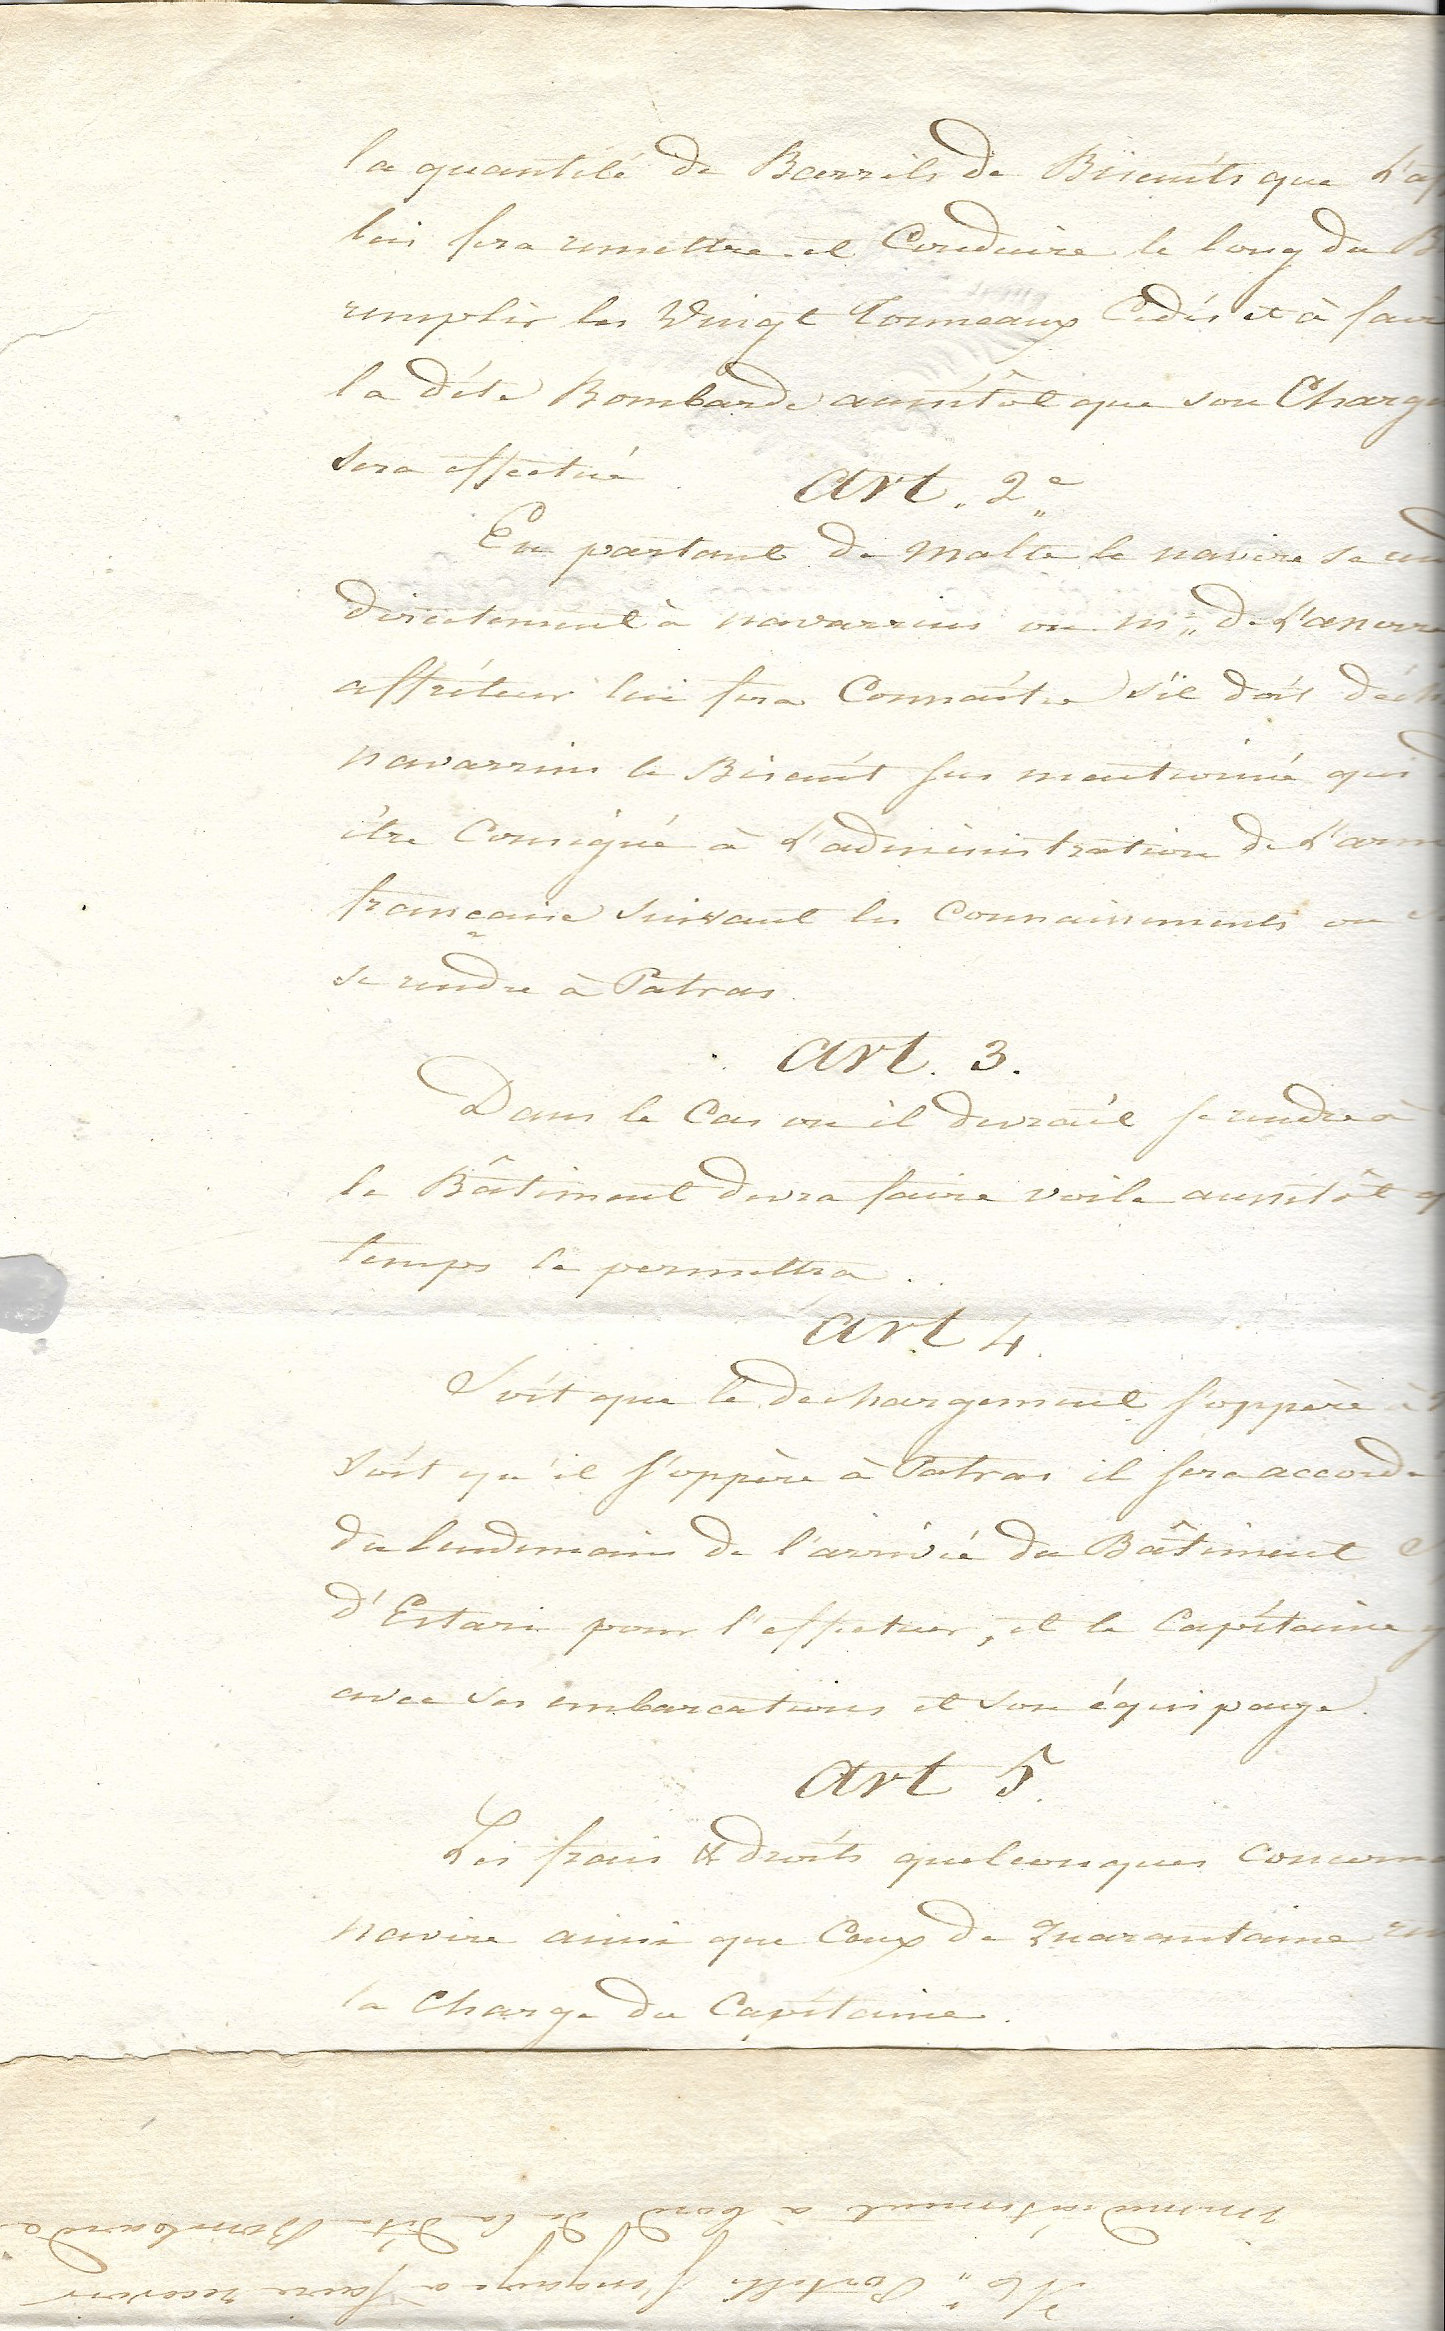 la quantité de Barrils de Biscuits que L'af
lui fera remettre et Conduire le long du B
remplir les Vingt Tonneaux Cédés et à fair
la dite Bombarde aussitôt que son Charge
sera effectué
art. 2e
En partant de Malte le navire se rend
directement à navarrins ou Mr. de L'
affréteur lui fera Connaître s'il doit déch
navarrins le Biscuit sus mentionné qui d
être Consigné à L'administration de L'arm
française suivant les Connaissements ou s
se rendre à Patras
art. 3.
Dans le Cas ou il devrait se rendre à
le Bâtiment devra faire voile aussitôt q
temps le permettra.
art 4.
Soit que le dechargement s'oppère à N
soit qu'il s'oppère à Patras il sera accordé
du lendemain de l'arrivée du Bâtiment
d'Estarie pour l'effectuer, et le Capitaine y
avec ses embarcations et son équipage.
art 5.
Les frais & droits quelconques Concerna
navire ainsi que Ceux de Quarantaine
la Charge du Capitaine.
Mr. Portelli s'engage a faire recevoir
immédiatement à bord de la dite Bombarde